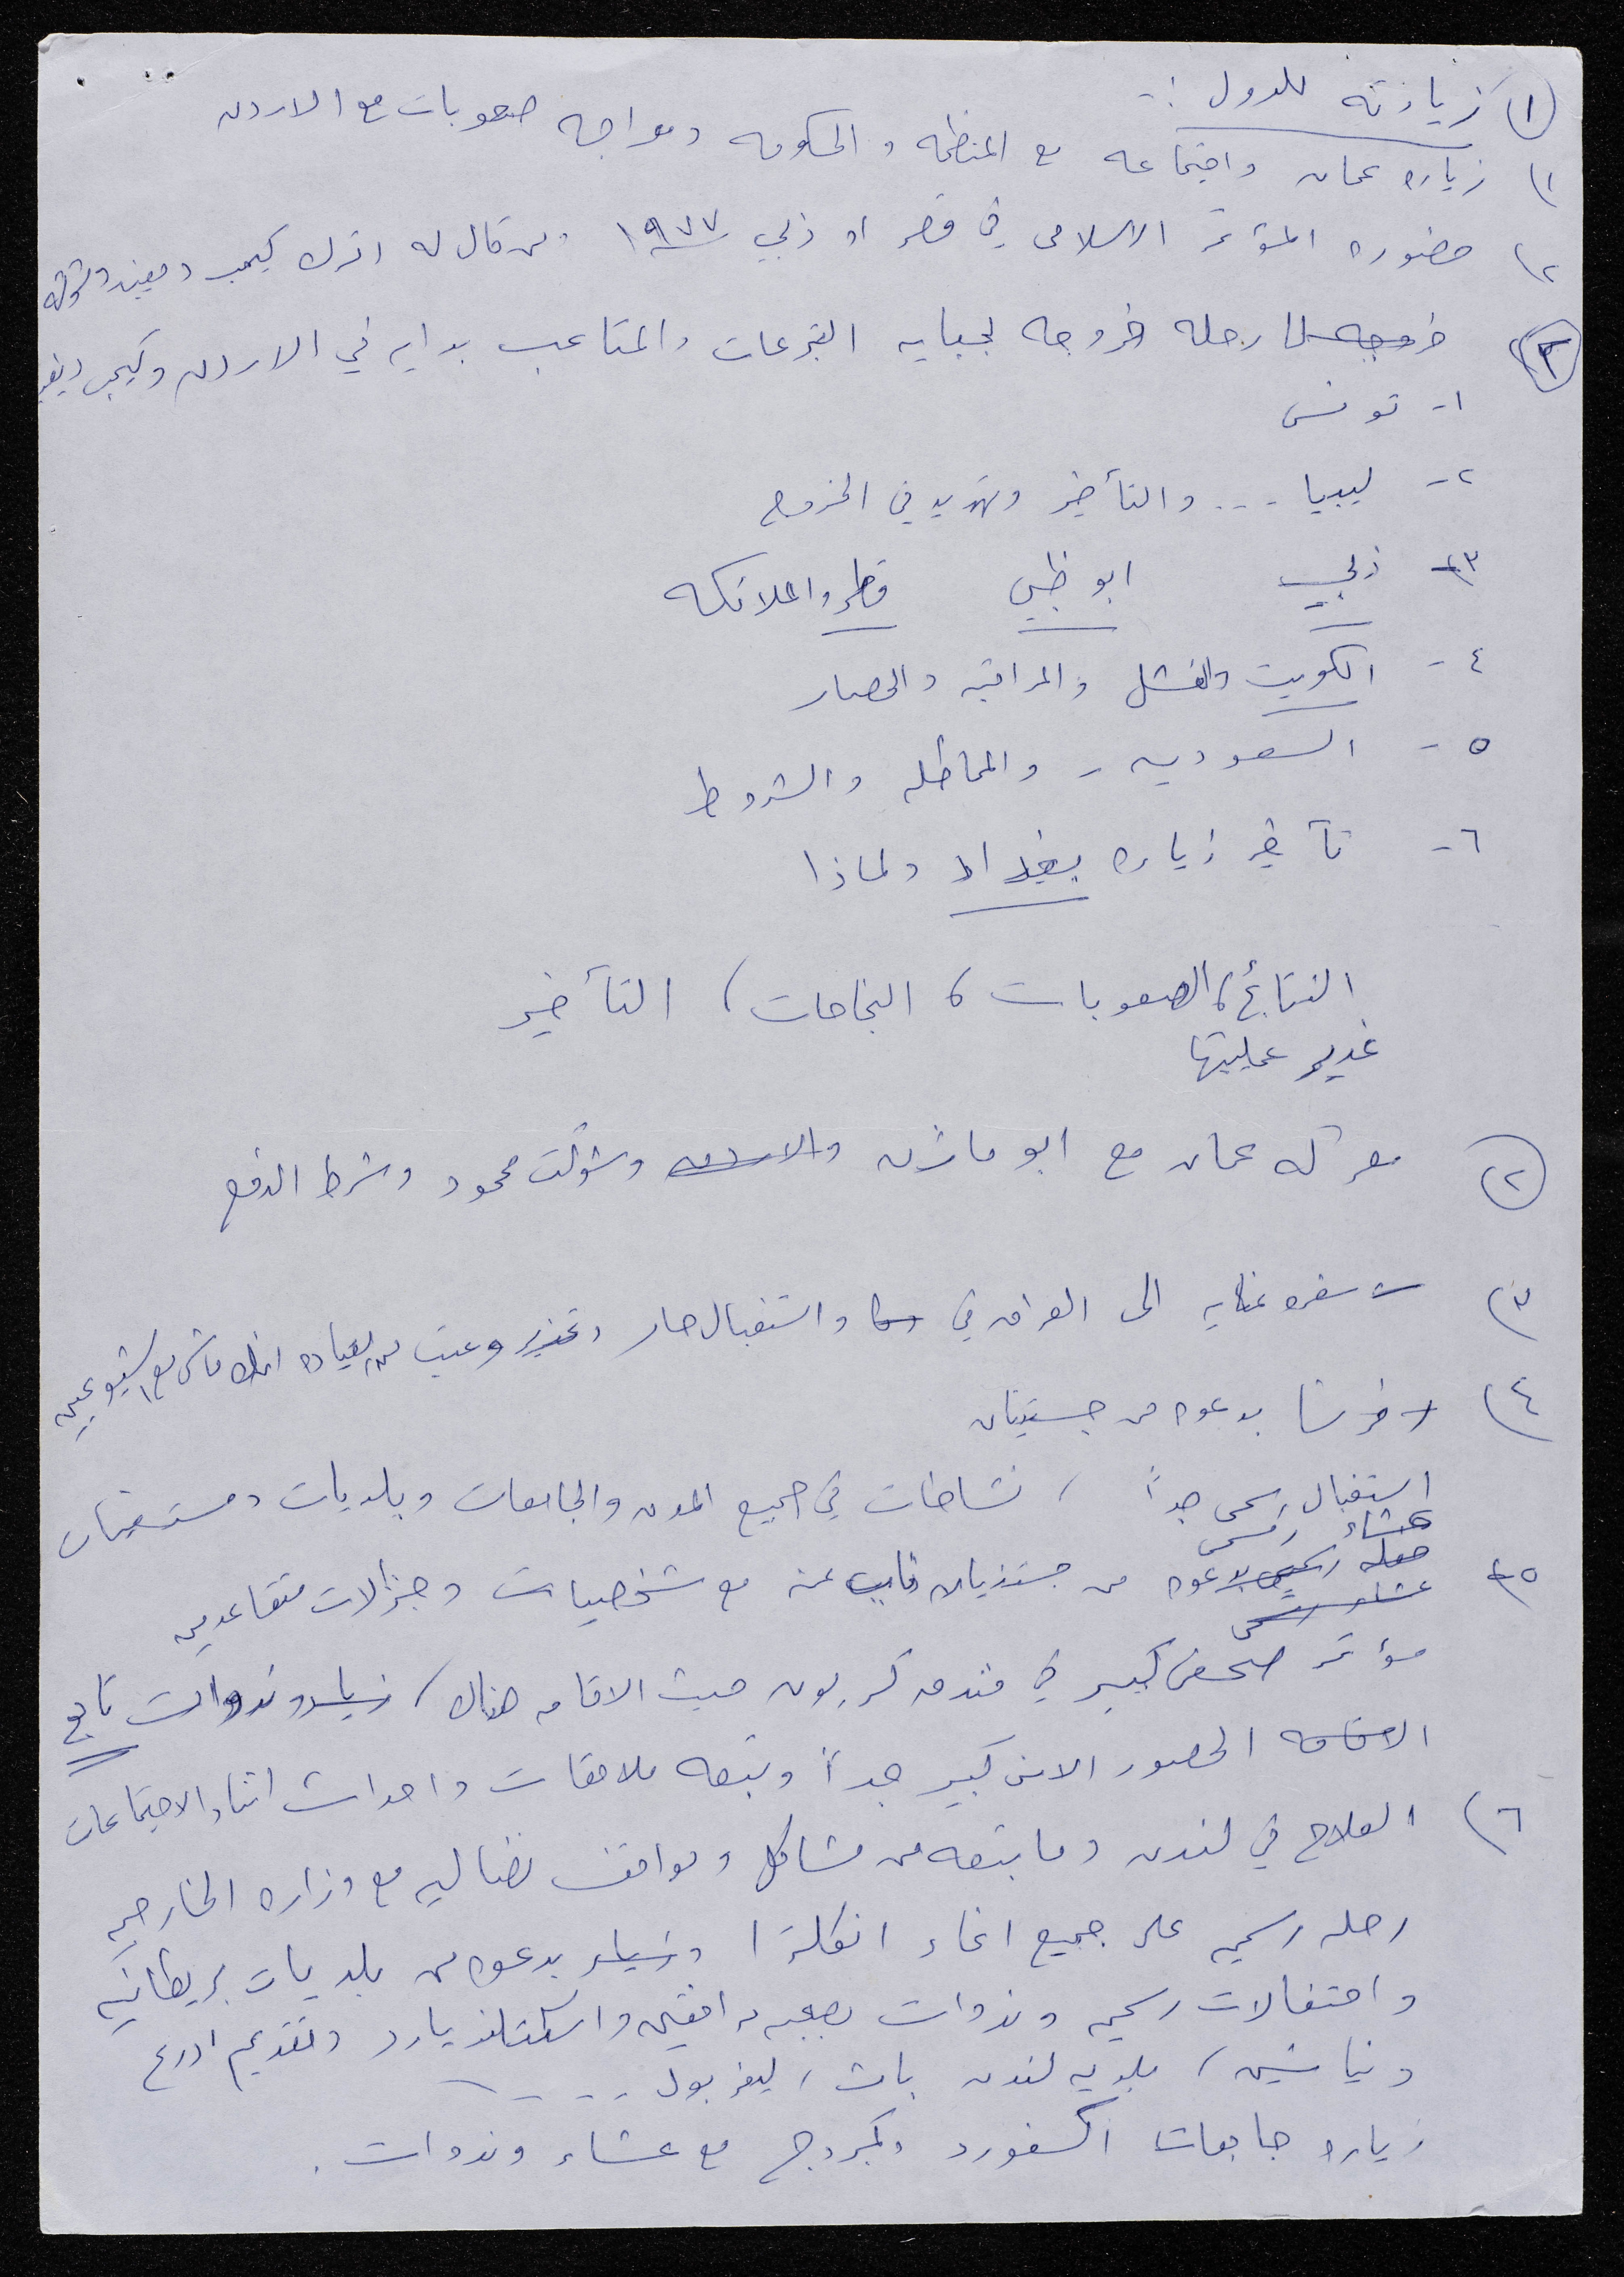 ① زيارته للدول :-
١) زياره عمان واجتماعه مع المنظمه والحكومه ومواجه صعوبات مع الاردن
٢) حضوره المؤتمر الاسلامي في قطر او دبي ١٩٧٧ من قال له اترك كيمب
٣) رحله خروجه لجبايه التبرعات والمتاعب بدايه في الاردن وكيمب
١- تونس
٢- ليبيا ... والتأخير وتهديد في الخروج
٣- دبي ابو ظبي قطر
٤- الكويت والفشل والمراقبه والحصار
٥- السعوديه - والمماطله والشروط
٦- تأخير زياره بغداد ولماذا
النتائج، الصعوبات، النجاحات، التأخير
عمليتها
② معركه عمان مع ابو مازن والاردن وشوكت محمود وشرط الدفع
٣) سفره الى العراق في واستقبال حار وعتب من القياده انك ماشي مع الشيوعيين
٤) فرنسا بدعوه من جستيان
استقبال رسمي جداً، نشاطات في جميع المدن والجامعات وبلديات ومستشفيات
٥- عشاء رسمي
حفله رسمي بدعوه من مع شخصيات وجنرالات متقاعدين
عشاء رسمي
مؤتمر صحفي كبير في فندق كريون حيث الاقامه هناك، وندوات
الاقامه الحضور الامني كبير جداً وبتبعه ملاحقات واحداث اثناء الاجتماعات
٦) العلاج في لندن وما بتبعه من مشاكل ومواقف نضاليه مع وزاره الخارجيه
رحله رسميه على جميع انحاء انكلترا بدعوه من بلديات بريطانيه
واحتفالات رسميه وندوات بصحبه مرافقين واسكتلنديارد وتقديم ادرع
ونياشين، بلديه لندن باث، ليفربول .....
زياره جامعات اكسفورد وكمبردج مع عشاء وندوات.